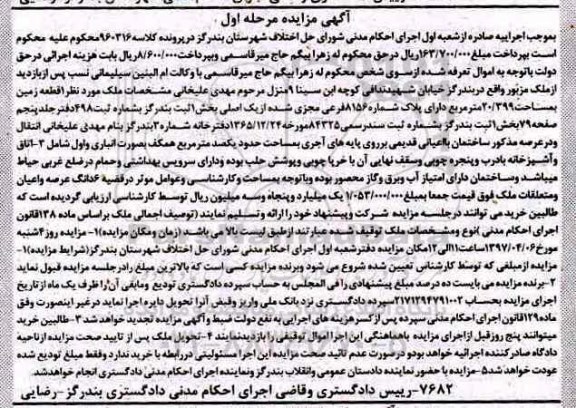 آگهی مزایده مرحله اول
بموجب اجراییه صادره ازشعبه اول اجرای احکام مدنی شورای حل اختلاف شهرستان بندرگز درپرونده کلاسه۹۶۰۳۱۶محکوم علیه محکوم
است بپرداخت مبلغ۱۶۳/۷۰۰/۰۰۰ریال درحق محکوم له زهرا بیگم حاج میرقاسمی وبپرداخت۸/۶۰۰/۰۰۰ریال بابت هزینه اجرائی درحق
دولت باتوجه به اموال تعرفه شده ازسوی شخص محکوم له زهرا بیگم حاج میرقاسمی با وکالت ام البنین سیلیمانی نسب پس ازبازدید
ازملک مزبور واقع دربندرگز خیابان شهیدندافی کوچه ابن سینا ۹منزل مرحوم مهدی علیخانی مشخصات ملک مورد نظر۱قطعه زمین
بمساحت۲۰/۳۹۹مترمربع دارای پلاک شماره۸۱۵۶فرعی مجزی شده ازیک اصلی بخش۱ثبت بندرگز بشماره ثبت۴۹۸دفترجلد پنجم
صفحه۷۹بخش۱ثبت بندرگز بشماره ثبت سندرسمی۸۴۳۲۵مورخه۱۳۶۵/۱۲/۲۴دفترخانه شماره۳بندرگز بنام مهدی علیخانی انتقال
ودرعرصه مذکور ساختمان بااعیانی قدیمی برروی پایه های آجری بمساحت حدود یکصد مترمربع همکف بصورت انباری واول شامل ۲-اتاق
وآشپزخانه بادرب وپنجره چوبی وسقف نهایی آن با خرپا چوبی وپوشش حلب بوده ودارای سرویس بهداشتی وحمام درضلع غربی حیاط
میباشد وساختمان دارای امتیاز آب وبرق وگاز محصور بوده وباتوجه بمساحت وکارشناسی وعوامل موثر درقضیه ۶دانگ عرصه واعیان
ومتعلقات ملک فوق قیمت جمعا بمبلغ۱/۰۵۳/۰۰۰/۰۰۰ یک میلیارد وپنجاه وسه میلیون ریال توسط کارشناسی ارزیابی گردیده است که
طالبین خرید می توانند درجلسه مزایده شرکت وپیشنهاد خود را ارائه وتسلیم نمایند (توصیف اجمالی ملک براساس ماده ۱۳۸قانون
اجرای احکام مدنی )نوع ومشخصات ملک توقیف شده عبارتند ازطبق لیست بالا می باشد (زمان ومکان مزایده)۱- مزایده روز۴شنبه
مورخ۱۳۹۷/۰۴/۰۶ساعت۱۱الی۱۲مکان مزایده دفترشعبه اول اجرای احکام مدنی شورای حل اختلاف شهرستان بندرگز(شرایط مزایده)۱-
مزایده ازمبلغی که توسط کارشناس تعیین شده شروع می شود وبرنده مزایده کسی است که بالاترین مبلغ رادرجلسه مزایده قبول نماید
۲-برنده مزایده می بایست ده درصد مبلغ پیشنهادی را فی المجلس به حساب سپرده دادگستری تودیع ومابقی آن را ظرف یک ماه از تاریخ
اجرای مزایده بحساب ۲۱۷۱۲۹۴۷۹۱۰۰۲سپرده دادگستری نزد بانک ملی واریز وقبض آنرا تحویل دایره اجرا نماید درغیر اینصورت وفق
ماده۱۲۹قانون اجرای احکام مدنی سپرده پس از کسرهزینه های اجرایی به نفع دولت ضبط وآگهی مزایده تجدید خواهد شد۳-طالبین خرید
میتوانند پنج روزقبل ازاجرای مزایده باهماهنگی این اجرا اموال توقیفی را بازدیدنمایند ۴-تحویل ملک پس از تایید صحت مزایده ازناحیه
دادگاه صادرکننده اجرائیه خواهد بودو در صورت عدم تائید صحت مزایده این اجرا مسئولیتی دررابطه با خرید ندارد وفقط مبلغ تودیع شده
عودت خواهد شد۵-مزایده با حضور نماینده دادستان عمومی وانقلاب بندرگز ونماینده اجرای احکام مدنی دادگستری انجام خواهدشد.
۷۶۸۲-رییس دادگستری وقاضی اجرای احکام مدنی دادگستری بندرگز-رضایی